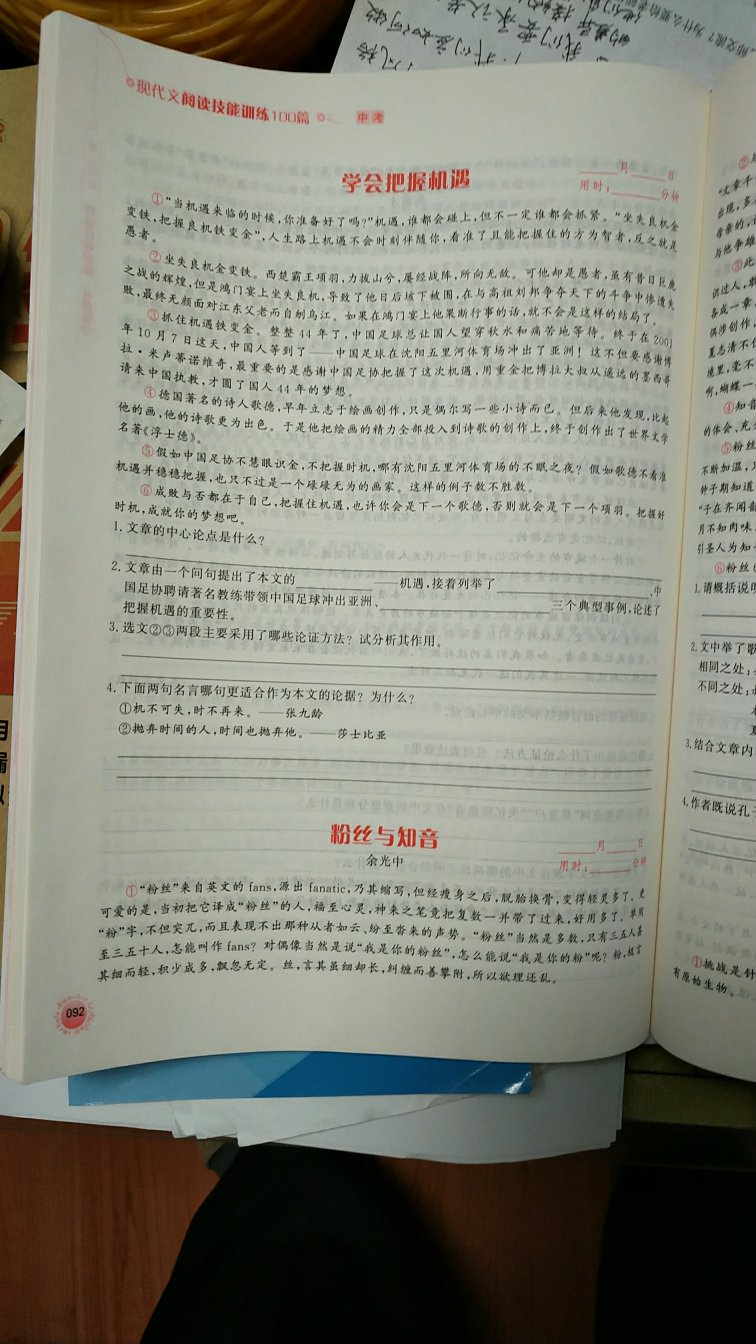 现代文阅读技能训练100篇
中考
学会把握机遇
____月____日
用时：______分钟
①“当机遇来临的时候,你准备好了吗?”机遇,谁都会碰上,但不一定谁都会抓紧。“坐失良机金
变铁,把握良机铁变金”,人生路上机遇不会时刻伴随你,看准了且能把握住的方为智者,反之就是
愚者。
②坐失良机金变铁。西楚霸王项羽,力拔山兮,屡经战阵,所向无敌。可他却是愚者,虽有昔日巨鹿
之战的辉煌,但是鸿门宴上坐失良机,导致了他日后垓下被围,在与高祖刘邦争夺天下的斗争中惨遭失
败,最终无颜面对江东父老而自刎乌江。如果在鸿门宴上他果断行事的话,就不会是这样的结局了。
③抓住机遇铁变金。整整44年了,中国足球总让国人望穿秋水和痛苦地等待。终于在2001
年10月7日这天,中国人等到了——中国足球在沈阳五里河体育场冲出了亚洲!这不但要感谢博
拉·米卢蒂诺维奇,最重要的是感谢中国足协把握了这次机遇,用重金把博拉大叔从遥远的墨西哥
请来中国执教,才圆了国人44年的梦想。
④德国著名的诗人歌德,早年立志于绘画创作,只是偶尔写一些小诗而已。但后来他发现,比起
他的画,他的诗歌更为出色。于是他把绘画的精力全部投入到诗歌的创作上,终于创作出了世界文学
名著《浮士德》。
⑤假如中国足协不慧眼识金,不把握时机,哪有沈阳五里河体育场的不眠之夜?假如歌德不看准
机遇并稳稳把握,也只不过是一个碌碌无为的画家。这样的例子数不胜数。
⑥成败与否都在于自己,把握住机遇,也许你会是下一个歌德,否则就会是下一个项羽。把握好
时机,成就你的梦想吧。
1.文章的中心论点是什么?
2.文章由一个问句提出了本文的______机遇,接着列举了______、中
国足协聘请著名教练带领中国足球冲出亚洲、______三个典型事例,论述了
把握机遇的重要性。
3.选文②③两段主要采用了哪些论证方法?试分析其作用。
4.下面两句名言哪句更适合作为本文的论据?为什么?
①机不可失,时不再来。——张九龄
②抛弃时间的人,时间也抛弃他。——莎士比亚
粉丝与知音
____月____日
余光中
用时：______分钟
①“粉丝”来自英文的fans,源出fanatic,乃其缩写,但经瘦身之后,脱胎换骨,变得轻灵多了。更
可爱的是,当初把它译成“粉丝”的人,福至心灵,神来之笔竟把复数一并带了过来,好用多了。单用
“粉”字,不但突兀,而且表现不出那种从者如云,纷至沓来的声势。“粉丝”当然是多数,只有三五人甚
至三五十人,怎能叫作fans?对偶像当然是说“我是你的粉丝”,怎么能说“我是你的粉”呢?粉,极言
其细而轻,积少成多,飘忽无定。丝,言其虽细却长,纠缠而善攀附,所以欲理还乱。
092